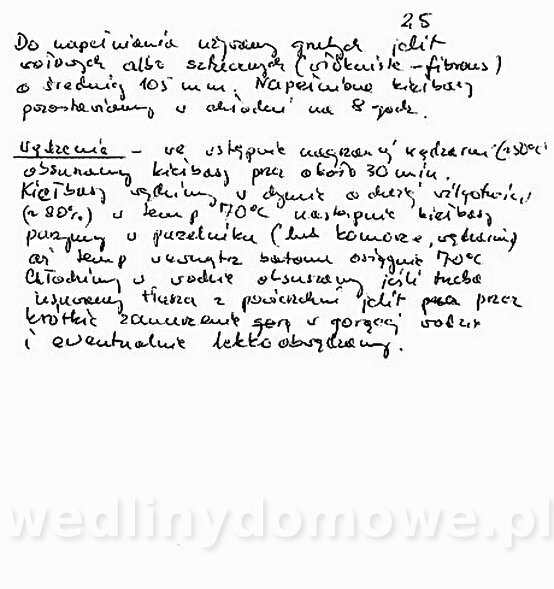 25
Do napełniania używamy grubych jelit
wołowych albo sztucznych (włókniste - fibrous)
o średnicy 105 mm. Napełnione kiełbasy
pozostawiamy w chłodni na 8 godz.
Wędzenie - we wstępnie nagrzanej wędzarni
obsuszamy kiełbasy przez około 30 min.
Kiełbasy wędzimy w dymie o dużej wilgotności
(~ 80%) w temp 70°C następnie kiełbasy
parzymy w parzelniku (lub komorze wędzarni)
aż temp wewnątrz batonu osiągnie 70°C
Chłodzimy w wodzie obsuszamy jeśli trzeba
usuwamy tłuszcz z powierzchni jelit przez
krótkie zanurzenie w gorącej wodzie
i ewentualnie lekko obwędzamy.
wedlinydomowe.pl